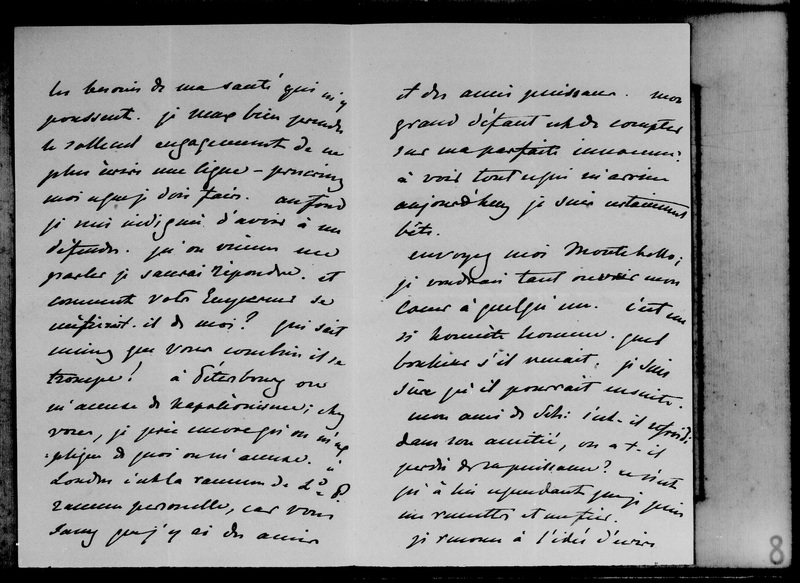 les besoins de ma santé qui m'y
poussent. je veux bien prendre
le sollennel engagement de ne
plus écrire une ligne – prescrivez
moi ce que je dois faire. au fond
je suis indignée d'avoir à me
défendre. qu'on vienne me
parler je saurai répondre. et
comment votre Empereur se
méfierait-il de moi? qui sait
mieux que vous combien il se
trompe! à Péterbourg on
m'accuse de napoléonisme; chez
vous, je prie encore qu'on m'ex
plique de quoi on m'accuse. à
Londres c'est la rancune de Ld P.
rancune personelle, car vous
savez que j'y ai des amis
et des amis puissans. mon
grand défaut est de compter
sur ma parfaite innocence;
à voir tout ce qui m'arrive
aujourd'huy je suis certainement
bête.
envoyez moi Montebello;
je voudrais tant ouvrir mon
coeur à quelqu'un. c'est un
si honnête homme. quel
bonheur s'il venait; je suis
sûre qu'il pourrait ensuite.
mon ami de Sch: s'est-il refroidi
dans son amitié, ou a-t-il
perdu de sa puissance? ce n'est
qu'à lui cependant que je puis
me remettre et me fier.
je renonce à l'idée d'écrire
8